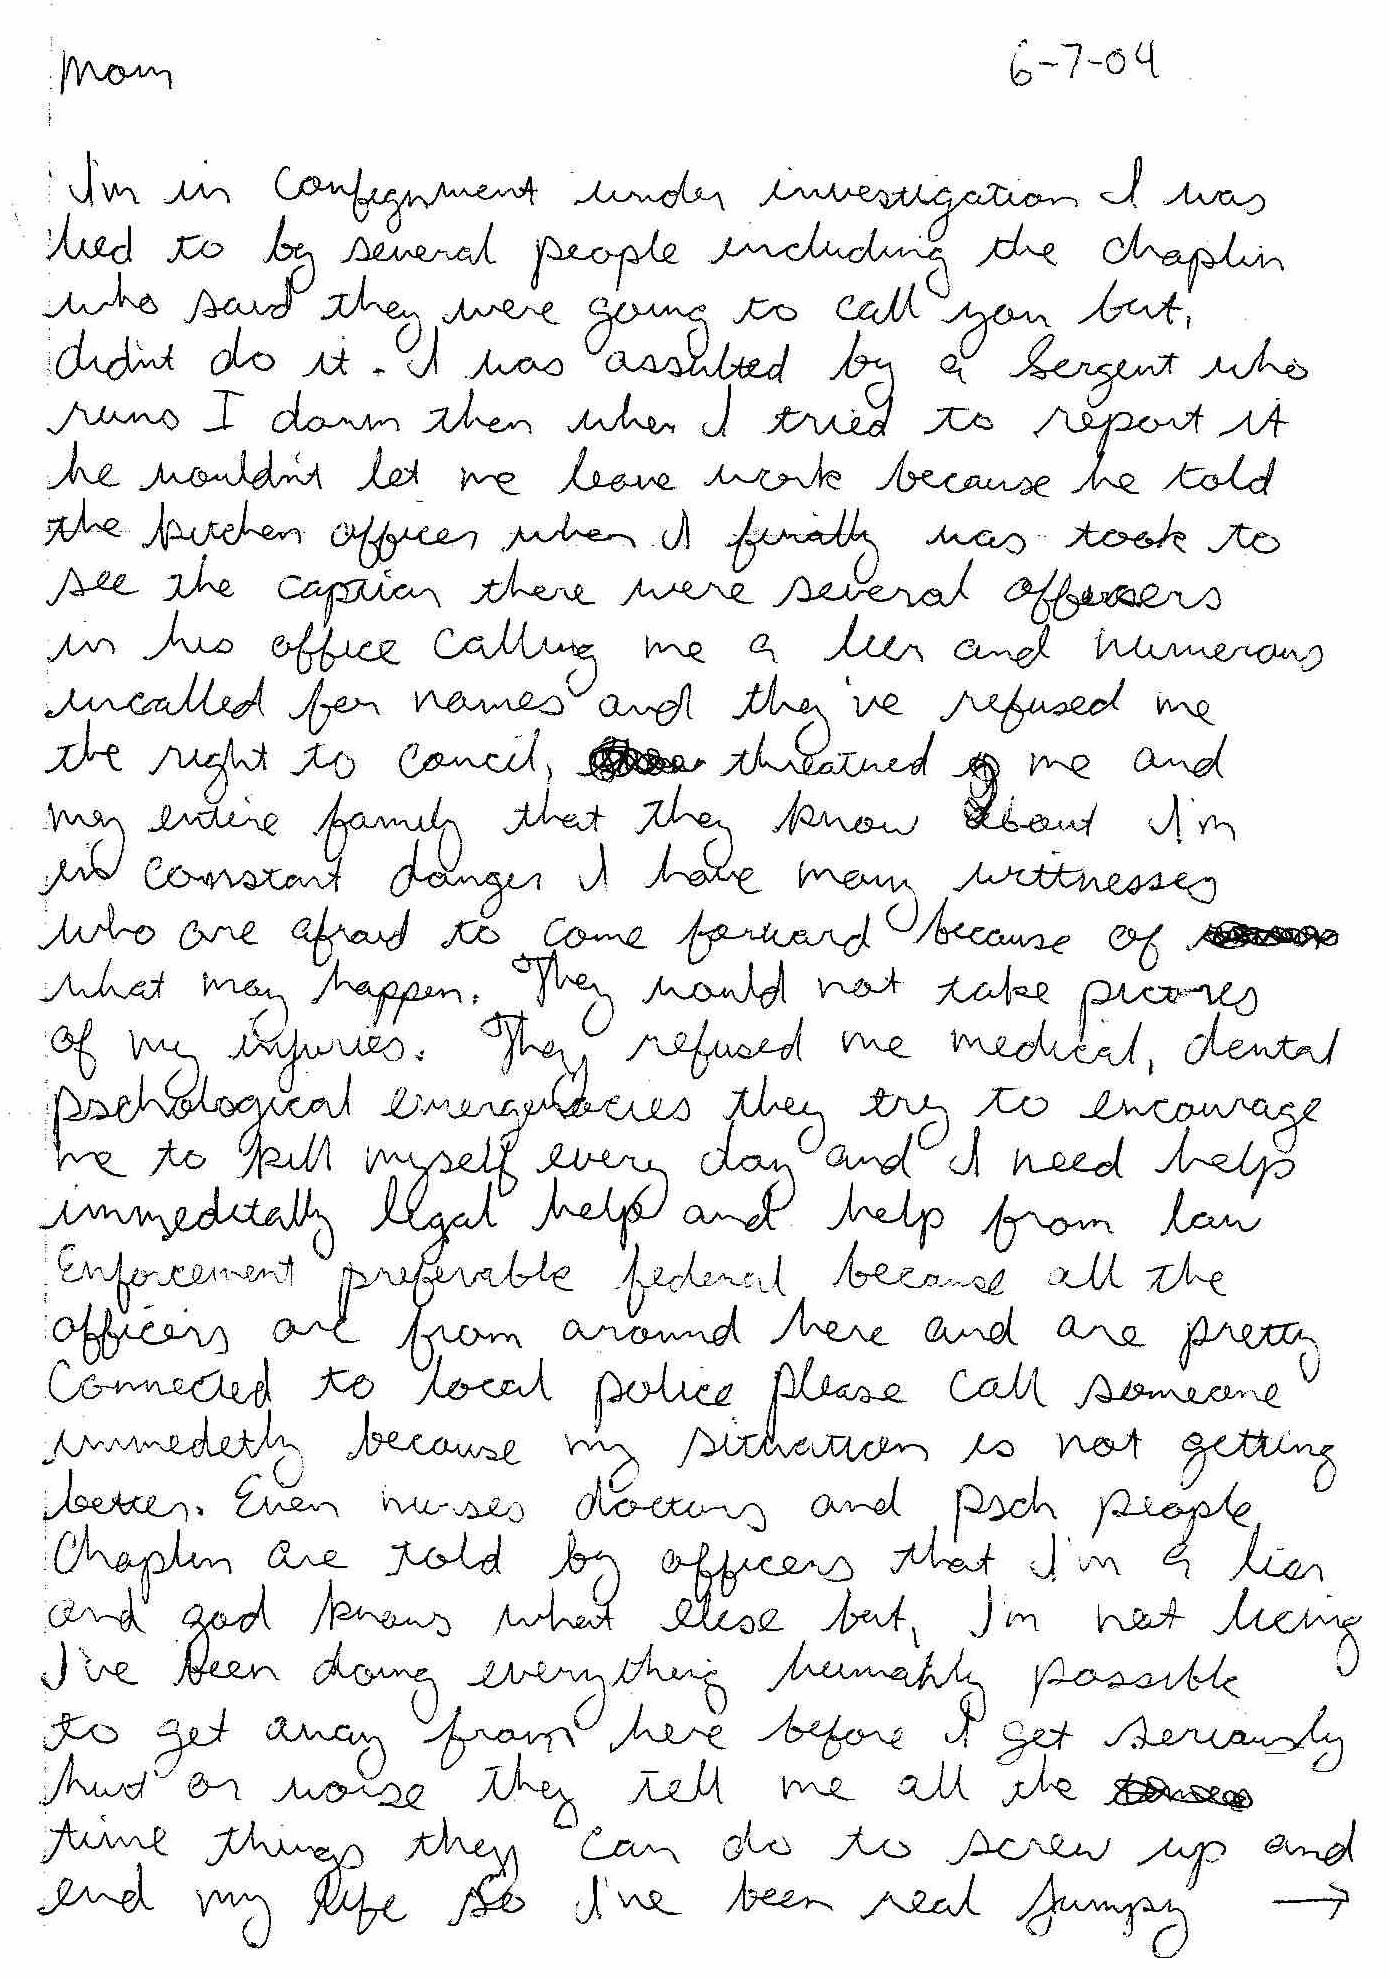 Mom 6-7-04
I'm in Confignment under investigation I was
lied to by several people including the Chaplin
who said they were going to call you but,
didn't do it. I was assulted by a Sergent who
runs I dorm then when I tried to report it
he wouldn't let me leave work because he told
the kitchen officer when I finally was took to
see the captian there were several officers
in his office calling me a lier and numerous
uncalled for names and they've refused me
the right to concil, threatned me and
my entire family that they know about I'm
in constant danger I have many wittnesses
who are afraid to come forward because of
what may happen. They would not take pictures
of my injuries. They refused me medical, dental
pschological emergencies they try to encourage
me to kill myself every day and I need help
immeditally legal help and help from law
Enforcement preferable federal because all the
officers are from around here and are pretty
Connected to local police please call someone
immedetly because my situation is not getting
better. Even nurses doctors and psch people
Chaplin are told by officers that I'm a liar
and god knows what else but, I'm not lieing
I've been doing everything humanly possible
to get away from here before I get seriously
hurt or worse they tell me all the
time things they can do to screw up and
end my life so I've been real jumpy →